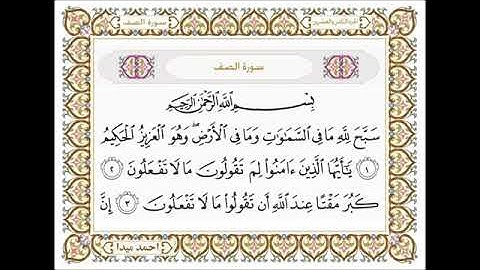 الجزء الثامن والعشرون
سورة الصف
سورة الصف
بِسْمِ اللَّهِ الرَّحْمَٰنِ الرَّحِيمِ
سَبَّحَ لِلَّهِ مَا فِي السَّمَٰوَٰتِ وَمَا فِي الْأَرْضِ ۖ وَهُوَ الْعَزِيزُ الْحَكِيمُ
١ يَٰٓأَيُّهَا الَّذِينَ ءَامَنُوا لِمَ تَقُولُونَ مَا لَا تَفْعَلُونَ ٢
كَبُرَ مَقْتًا عِندَ اللَّهِ أَن تَقُولُوا مَا لَا تَفْعَلُونَ ٣ إِنَّ
احمد ميدا